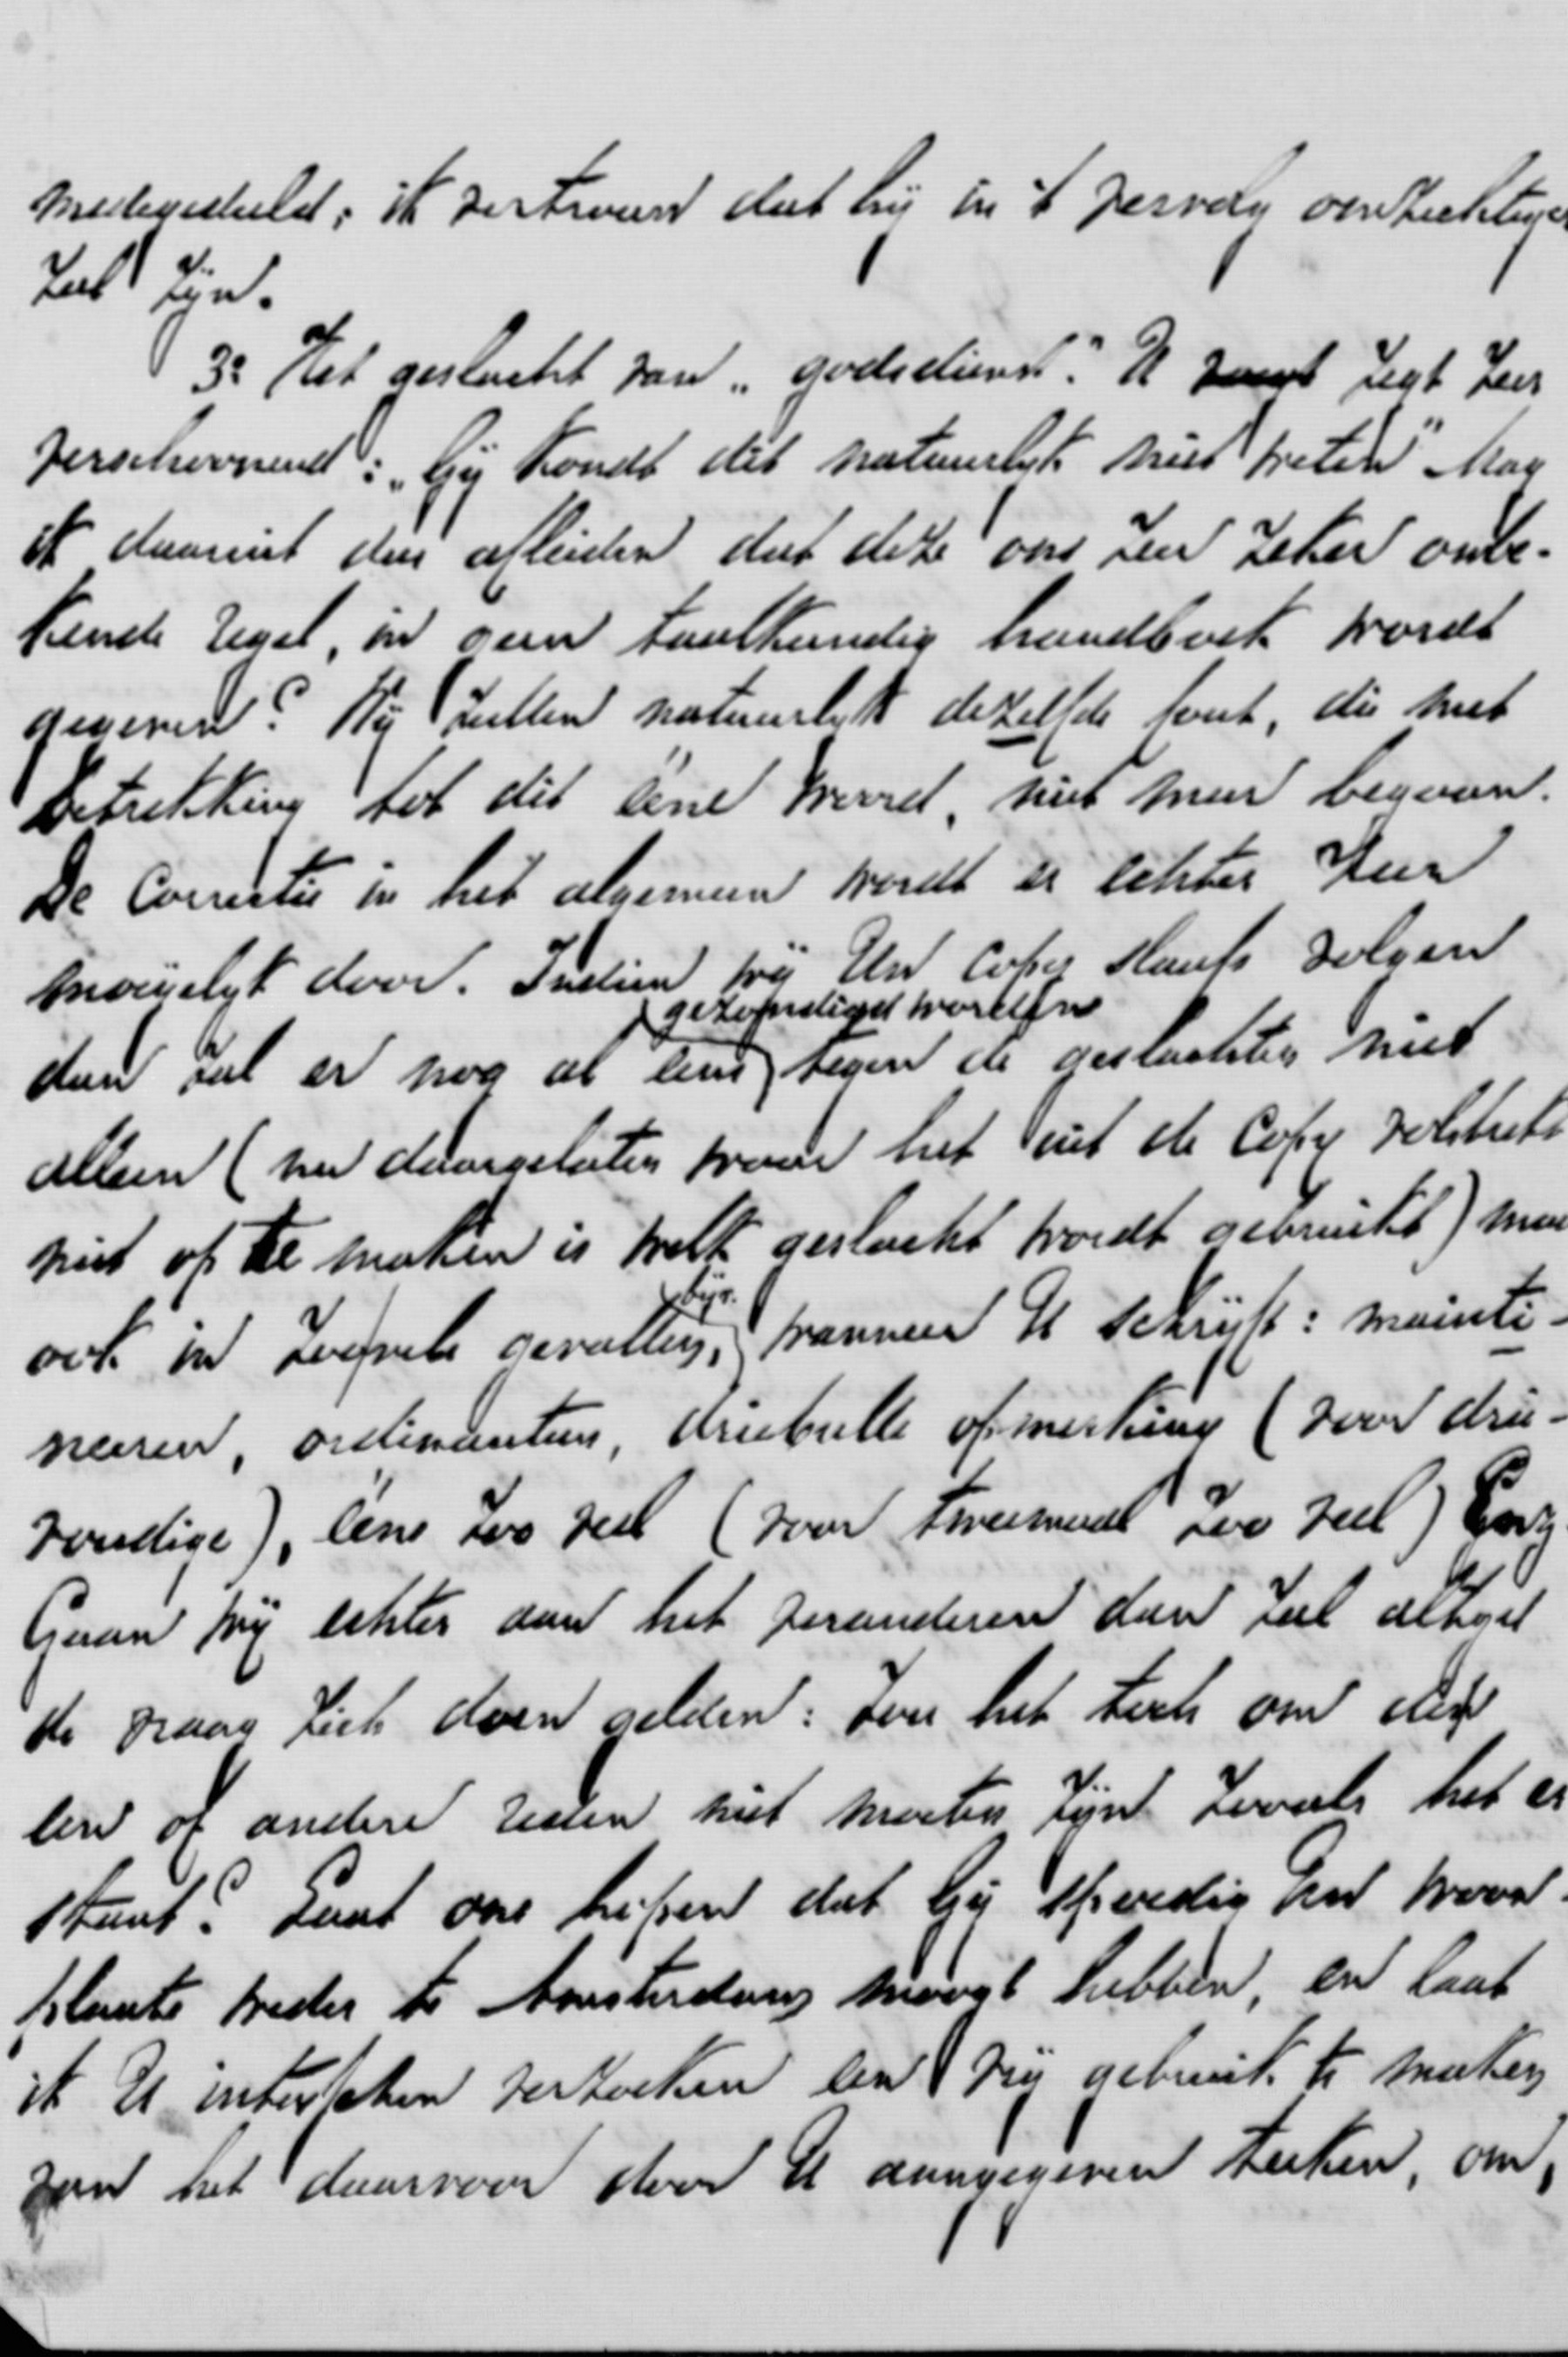 medegedeeld; ik vertrouw dat hij in 't vervolg voorzichtiger
zal zijn.
3º Het geslacht van „godsdienst." U zegt zeer
verschoonend: „Gij kondt dit natuurlijk niet weten" Mag
ik daaruit dus afleiden dat deze ons zeer zeker onbe-
kende regel, in geen taalkundig handboek wordt
gegeven? Wij zullen natuurlijk dezelfde fout, die met
betrekking tot dit ééne woord, niet meer begaan.
De Correctie in het algemeen wordt er echter zeer
moeijelijk door. Indien wij Uw Copy slaafs volgen
gezondigd worden
dan zal er nog al eens tegen de geslachten niet
alleen (nu daargelaten waar het uit de Copy volstrekt
niet op te maken is welk geslacht wordt gebruikt) maar
ook in zooveele gevallen, bijv. wanneer U schrijft: mainti-
neeren, ordinantien, driebulle opmerking (voor drie-
voudige), ééns zoo veel (voor tweemaal zoo veel) Enz.
Gaan wij echter aan het veranderen dan zal altijd
de vraag zich doen gelden: zou het toch om de
een of andere reden niet moeten zijn zooals het er
staat? Laat ons hopen dat Gij spoedig Uw woon-
plaats weder te Amsterdam moogt hebben, en laat
ik U intusschen verzoeken een vrij gebruik te maken
van het daarvoor door U aangegeven teeken, om,